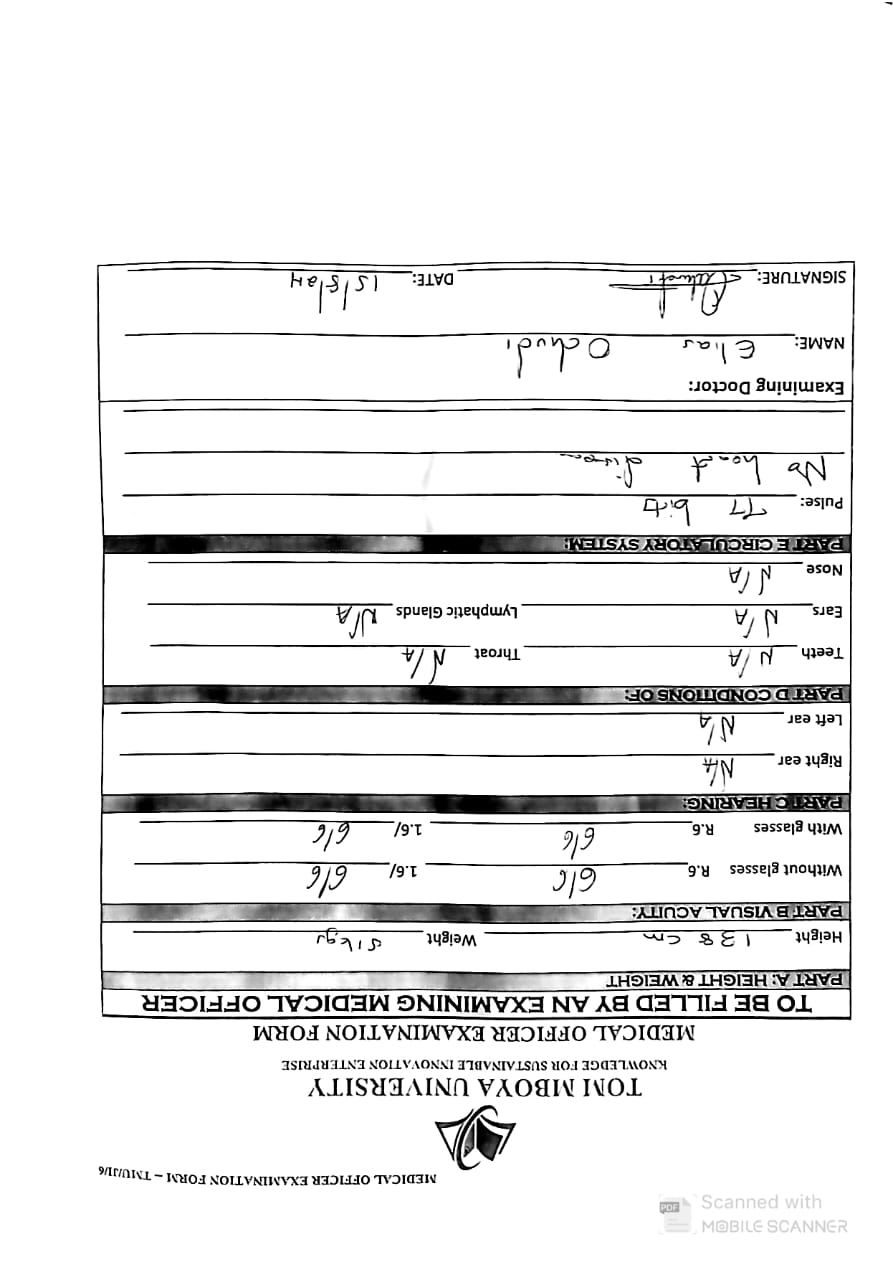 MEDICAL OFFICER EXAMINATION FORM – TMU/JI/6
TOM MBOYA UNIVERSITY
KNOWLEDGE FOR SUSTAINABLE INNOVATION ENTERPRISE
MEDICAL OFFICER EXAMINATION FORM
TO BE FILLED BY AN EXAMINING MEDICAL OFFICER
PART A: HEIGHT & WEIGHT
Height 138 cm Weight 51kgs
PART B VISUAL ACUITY:
Without glasses R.6 6/6 1.6/ 6/6
With glasses R.6 6/6 1.6/ 6/6
PART C HEARING:
Right ear N/A
Left ear N/A
PART D CONDITIONS OF:
Teeth N/A Throat N/A
Ears N/A Lymphatic Glands N/A
Nose N/A
PART E CIRCULATORY SYSTEM:
Pulse: 77 bits
No heart
Examining Doctor:
NAME: Elias Ochudi
SIGNATURE: DATE: 15/8/24
Scanned with
MOBILE SCANNER
PDF